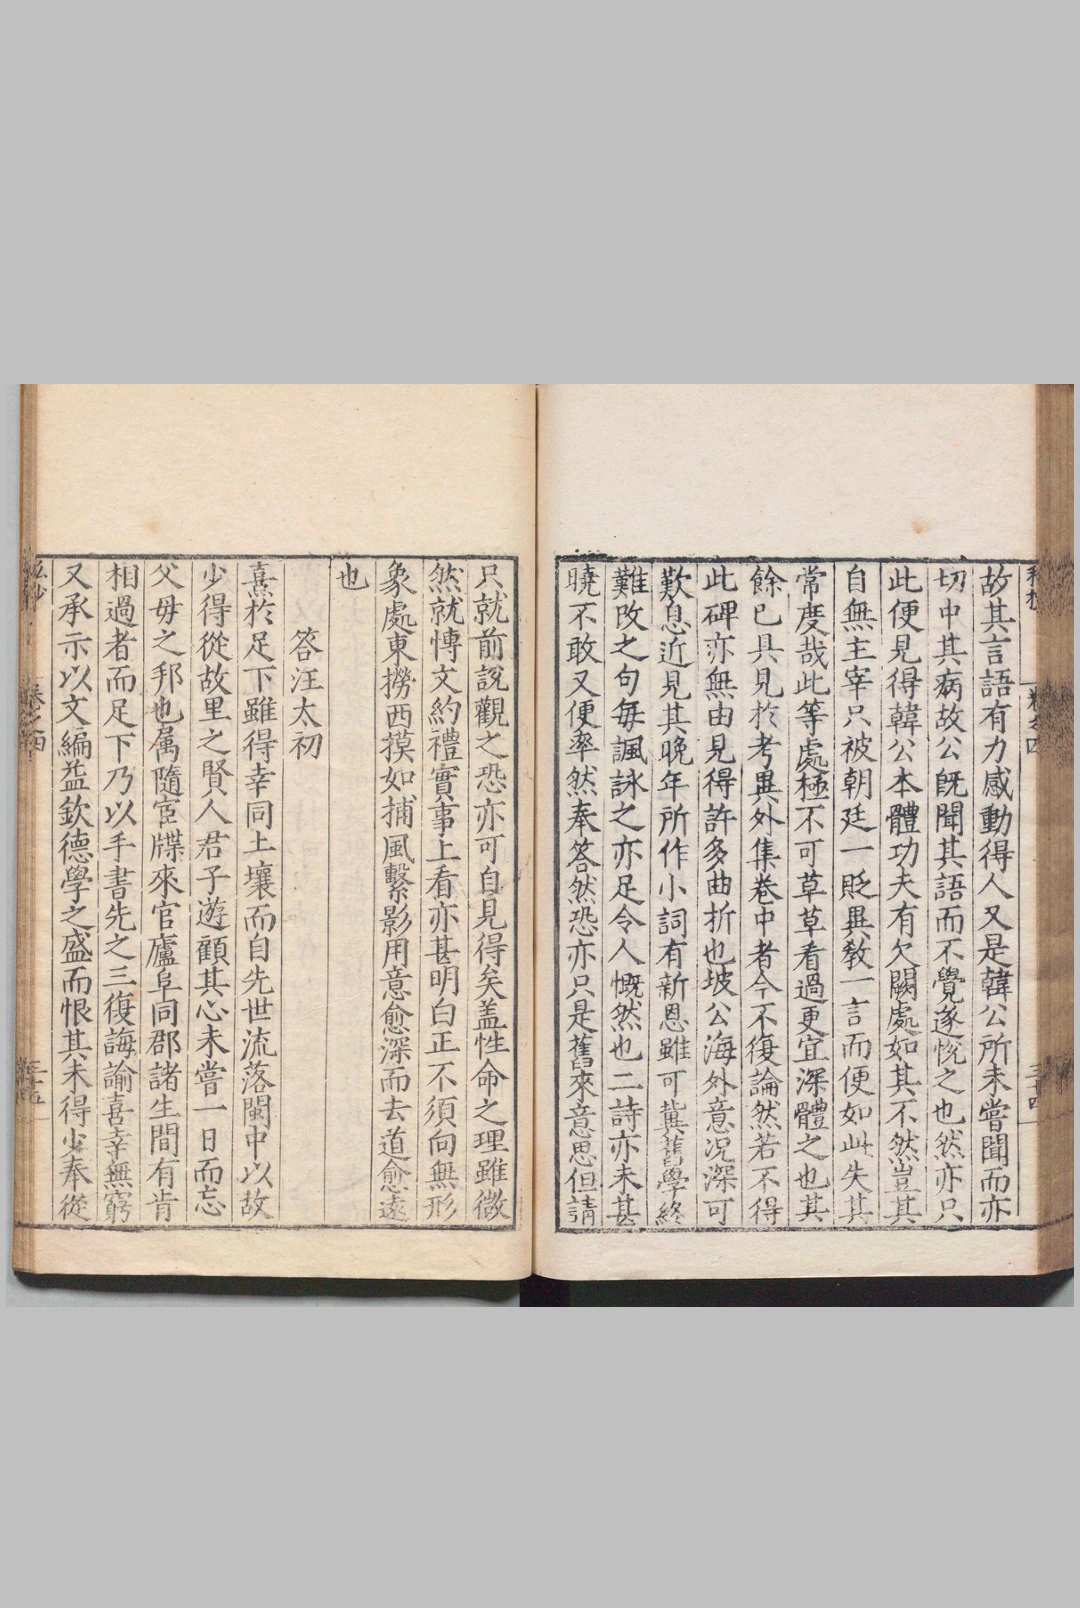 故其言語有力感動得人又是韓公所未嘗聞而亦
切中其病故公旣聞其語而不覺遂悅之也然亦只
此便見得韓公本體功夫有欠闕處如其不然豈其
自無主宰只被朝廷一貶異敎一言而便如此失其
常度哉此等處極不可草草看過更宜深體之也其
餘已具見於考異外集卷中者今不復論然若不得
此碑亦無由見得許多曲折也坡公海外意况深可
歎息近見其晩年所作小詞有新恩雖可冀舊學終
難改之句每諷詠之亦足令人慨然也二詩亦未甚
曉不敢又便率然奉答然恐亦只是舊來意思但請
只就前說觀之恐亦可自見得矣盖性命之理雖微
然就博文約禮實事上看亦甚明白正不須向無形
象處東撈西摸如捕風繫影用意愈深而去道愈遠
也
答汪太初
熹於足下雖得幸同土壤而自先世流落閩中以故
少得從故里之賢人君子遊顧其心未嘗一日而忘
父毋之邦也属隨宦牒來官廬阜同郡諸生間有肯
相過者而足下乃以手書先之三復誨諭喜幸無窮
又承示以文編益欽德學之盛而恨其未得少奉從
卷之四